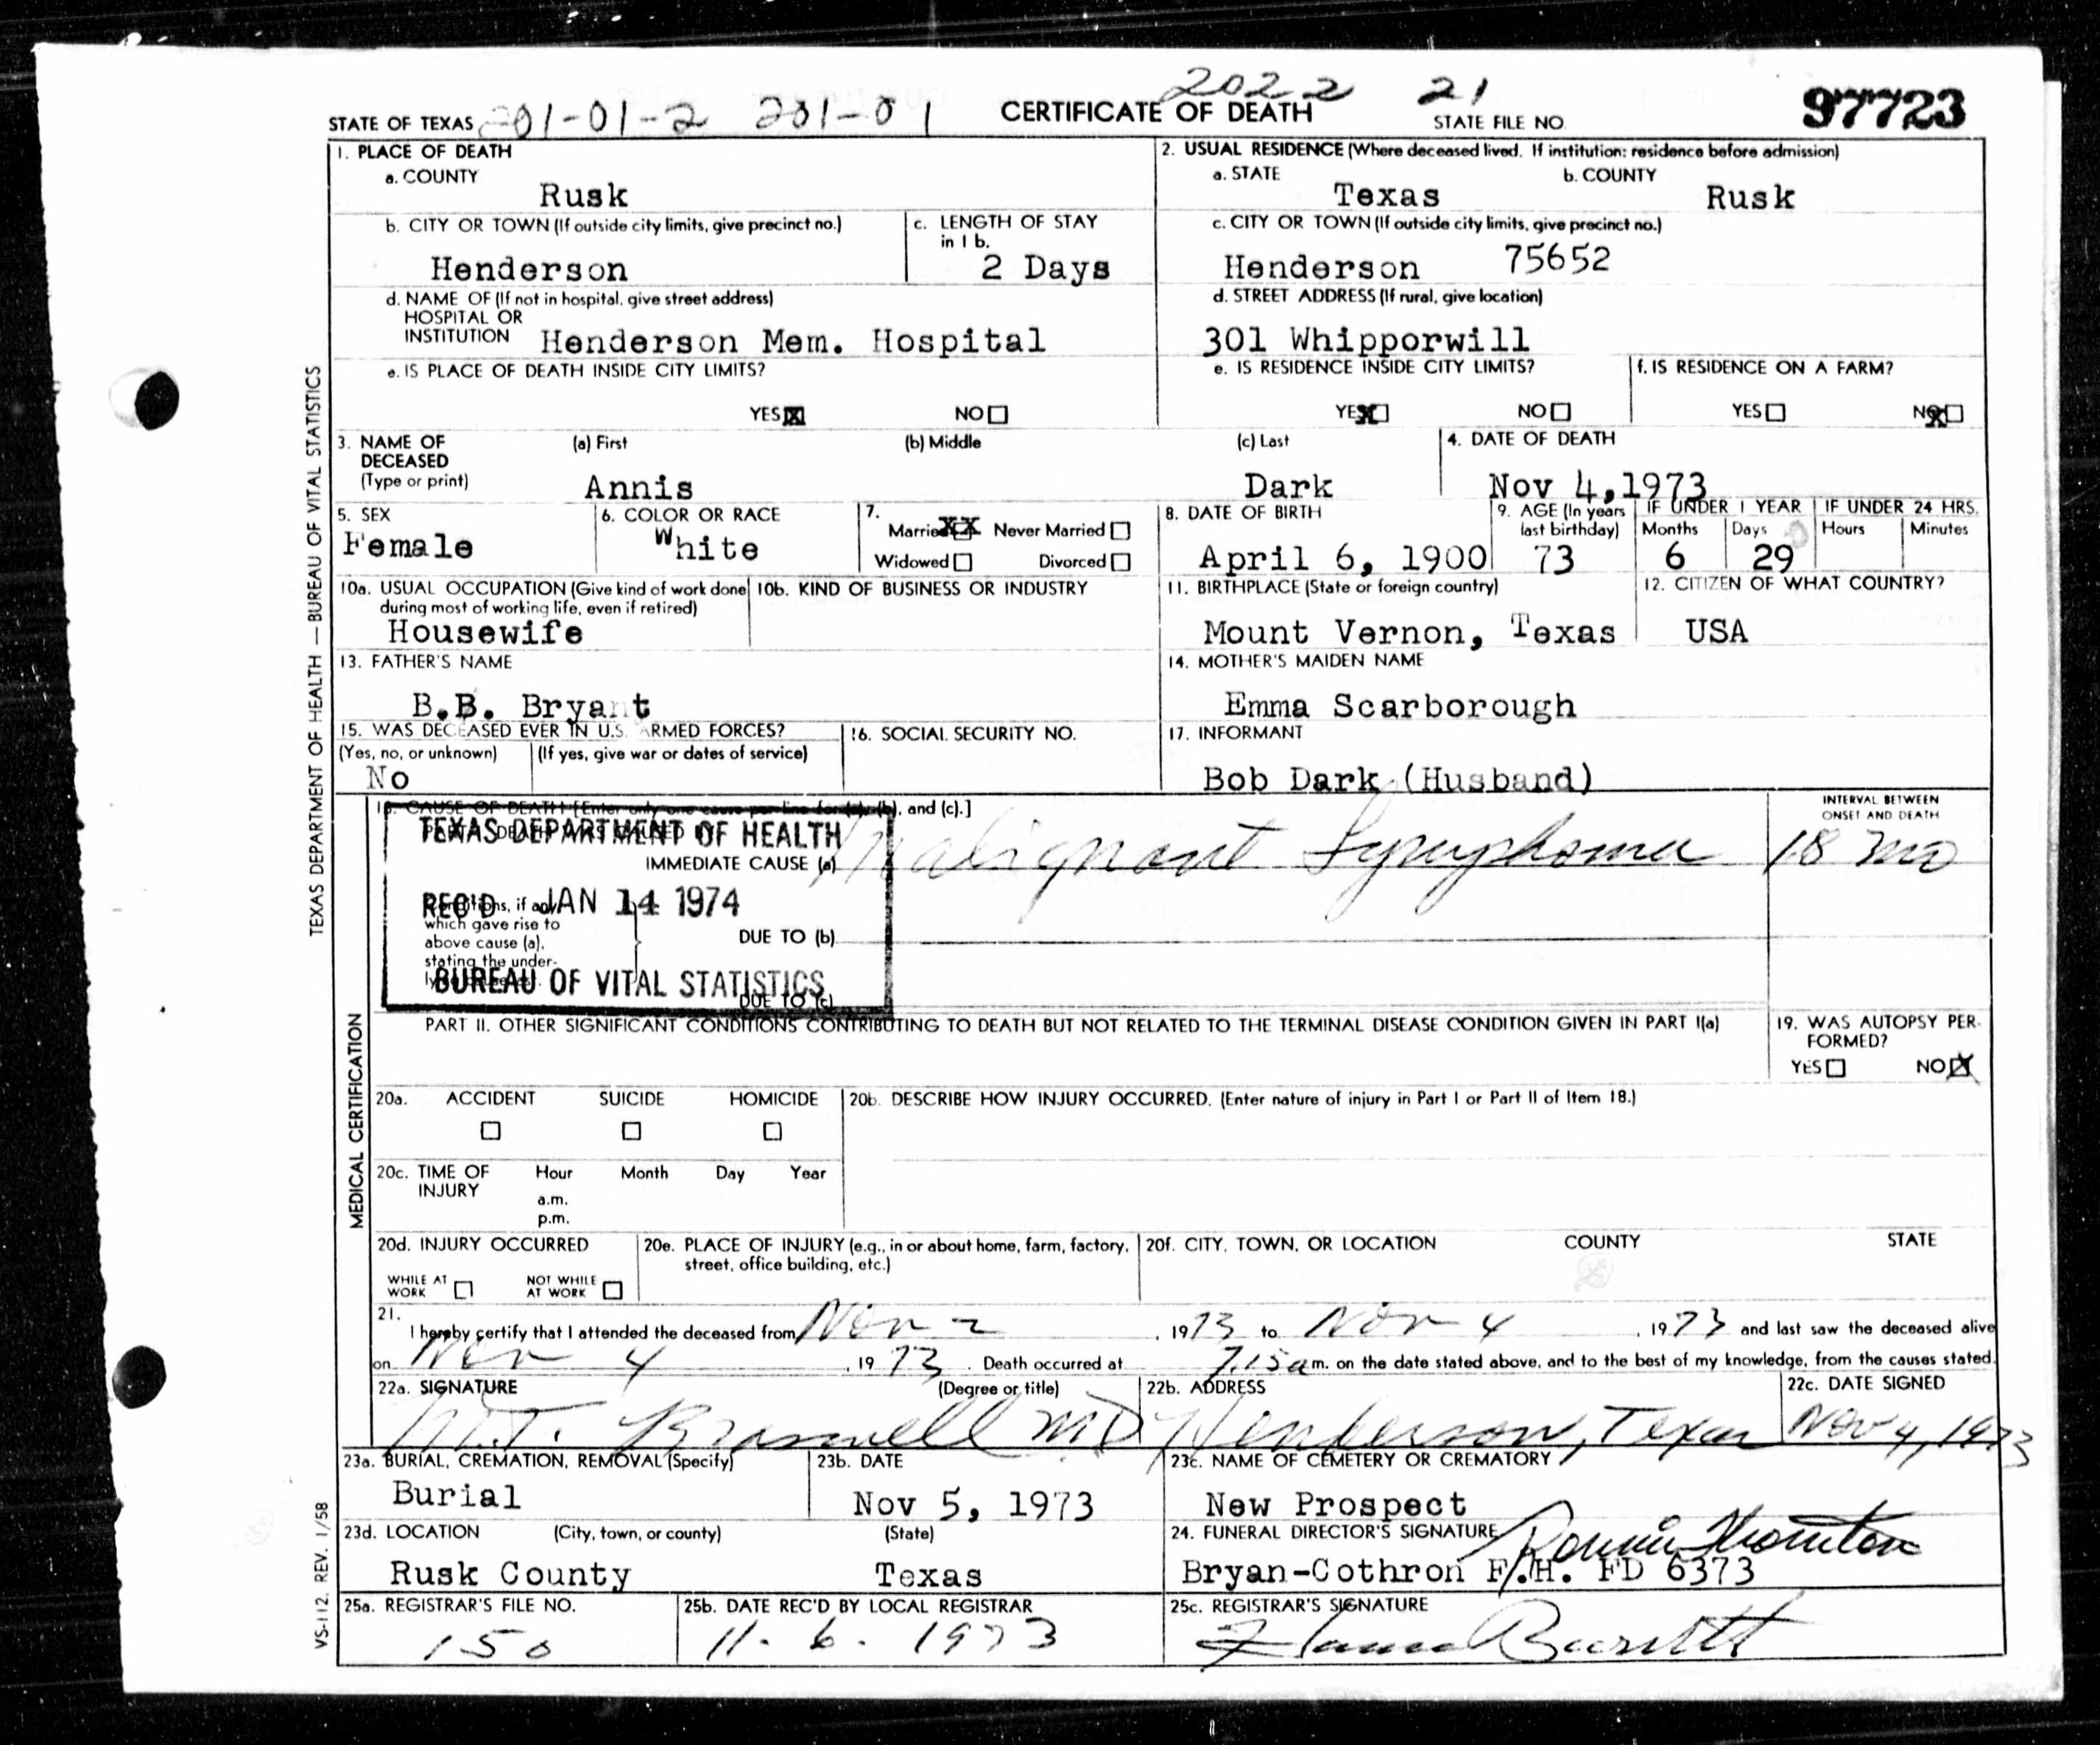 2022 21
STATE OF TEXAS 201-01-2 201-01 CERTIFICATE OF DEATH STATE FILE NO. 97723
1. PLACE OF DEATH
a. COUNTY
Rusk
2. USUAL RESIDENCE (Where deceased lived. If institution: residence before admission)
a. STATE b. COUNTY
Texas Rusk
b. CITY OR TOWN (If outside city limits, give precinct no.)
Henderson
c. LENGTH OF STAY
in 1 b.
2 Days
c. CITY OR TOWN (If outside city limits, give precinct no.)
Henderson 75652
d. NAME OF (If not in hospital, give street address)
HOSPITAL OR
INSTITUTION Henderson Mem. Hospital
d. STREET ADDRESS (If rural, give location)
301 Whipporwill
e. IS PLACE OF DEATH INSIDE CITY LIMITS?
YES X NO
e. IS RESIDENCE INSIDE CITY LIMITS?
YES X NO
f. IS RESIDENCE ON A FARM?
YES NO X
3. NAME OF
DECEASED
(Type or print)
(a) First (b) Middle (c) Last
Annis Dark
4. DATE OF DEATH
Nov 4,1973
5. SEX
Female
6. COLOR OR RACE
White
7.
Married XX Never Married
Widowed Divorced
8. DATE OF BIRTH
April 6, 1900
9. AGE (In years
last birthday)
73
IF UNDER 1 YEAR
Months Days
6 29
IF UNDER 24 HRS.
Hours Minutes
10a. USUAL OCCUPATION (Give kind of work done
during most of working life, even if retired)
Housewife
10b. KIND OF BUSINESS OR INDUSTRY
11. BIRTHPLACE (State or foreign country)
Mount Vernon, Texas
12. CITIZEN OF WHAT COUNTRY?
USA
13. FATHER'S NAME
B.B. Bryant
14. MOTHER'S MAIDEN NAME
Emma Scarborough
15. WAS DECEASED EVER IN U.S. ARMED FORCES?
(Yes, no, or unknown) (If yes, give war or dates of service)
No
16. SOCIAL SECURITY NO.
17. INFORMANT
Bob Dark (Husband)
18. CAUSE OF DEATH [Enter only one cause per line for (a), (b), and (c).]
INTERVAL BETWEEN
ONSET AND DEATH
TEXAS DEPARTMENT OF HEALTH
IMMEDIATE CAUSE (a) Malignant Lymphoma 18 mo
REC'D JAN 14 1974
Conditions, if any,
which gave rise to
above cause (a),
stating the under-
DUE TO (b)
BUREAU OF VITAL STATISTICS
DUE TO (c)
PART II. OTHER SIGNIFICANT CONDITIONS CONTRIBUTING TO DEATH BUT NOT RELATED TO THE TERMINAL DISEASE CONDITION GIVEN IN PART I(a)
19. WAS AUTOPSY PER-
FORMED?
YES NO X
20a. ACCIDENT SUICIDE HOMICIDE
20b. DESCRIBE HOW INJURY OCCURRED. (Enter nature of injury in Part I or Part II of Item 18.)
20c. TIME OF
INJURY
Hour Month Day Year
a.m.
p.m.
20d. INJURY OCCURRED
WHILE AT
WORK
NOT WHILE
AT WORK
20e. PLACE OF INJURY (e.g., in or about home, farm, factory,
street, office building, etc.)
20f. CITY, TOWN, OR LOCATION COUNTY STATE
21.
I hereby certify that I attended the deceased from Nov 2, 1973 to Nov 4, 1973 and last saw the deceased alive
on Nov 4, 1973. Death occurred at 7:15 a m. on the date stated above, and to the best of my knowledge, from the causes stated.
22a. SIGNATURE (Degree or title)
M.T. Braswell MD
22b. ADDRESS
Henderson, Texas
22c. DATE SIGNED
Nov 4, 1973
23a. BURIAL, CREMATION, REMOVAL (Specify)
Burial
23b. DATE
Nov 5, 1973
23c. NAME OF CEMETERY OR CREMATORY
New Prospect
23d. LOCATION (City, town, or county) (State)
Rusk County Texas
24. FUNERAL DIRECTOR'S SIGNATURE Ronnie Thornton
Bryan-Cothron F.H. FD 6373
25a. REGISTRAR'S FILE NO.
150
25b. DATE REC'D BY LOCAL REGISTRAR
11. 6. 1973
25c. REGISTRAR'S SIGNATURE
TEXAS DEPARTMENT OF HEALTH — BUREAU OF VITAL STATISTICS
MEDICAL CERTIFICATION
VS-112. REV. 1/58